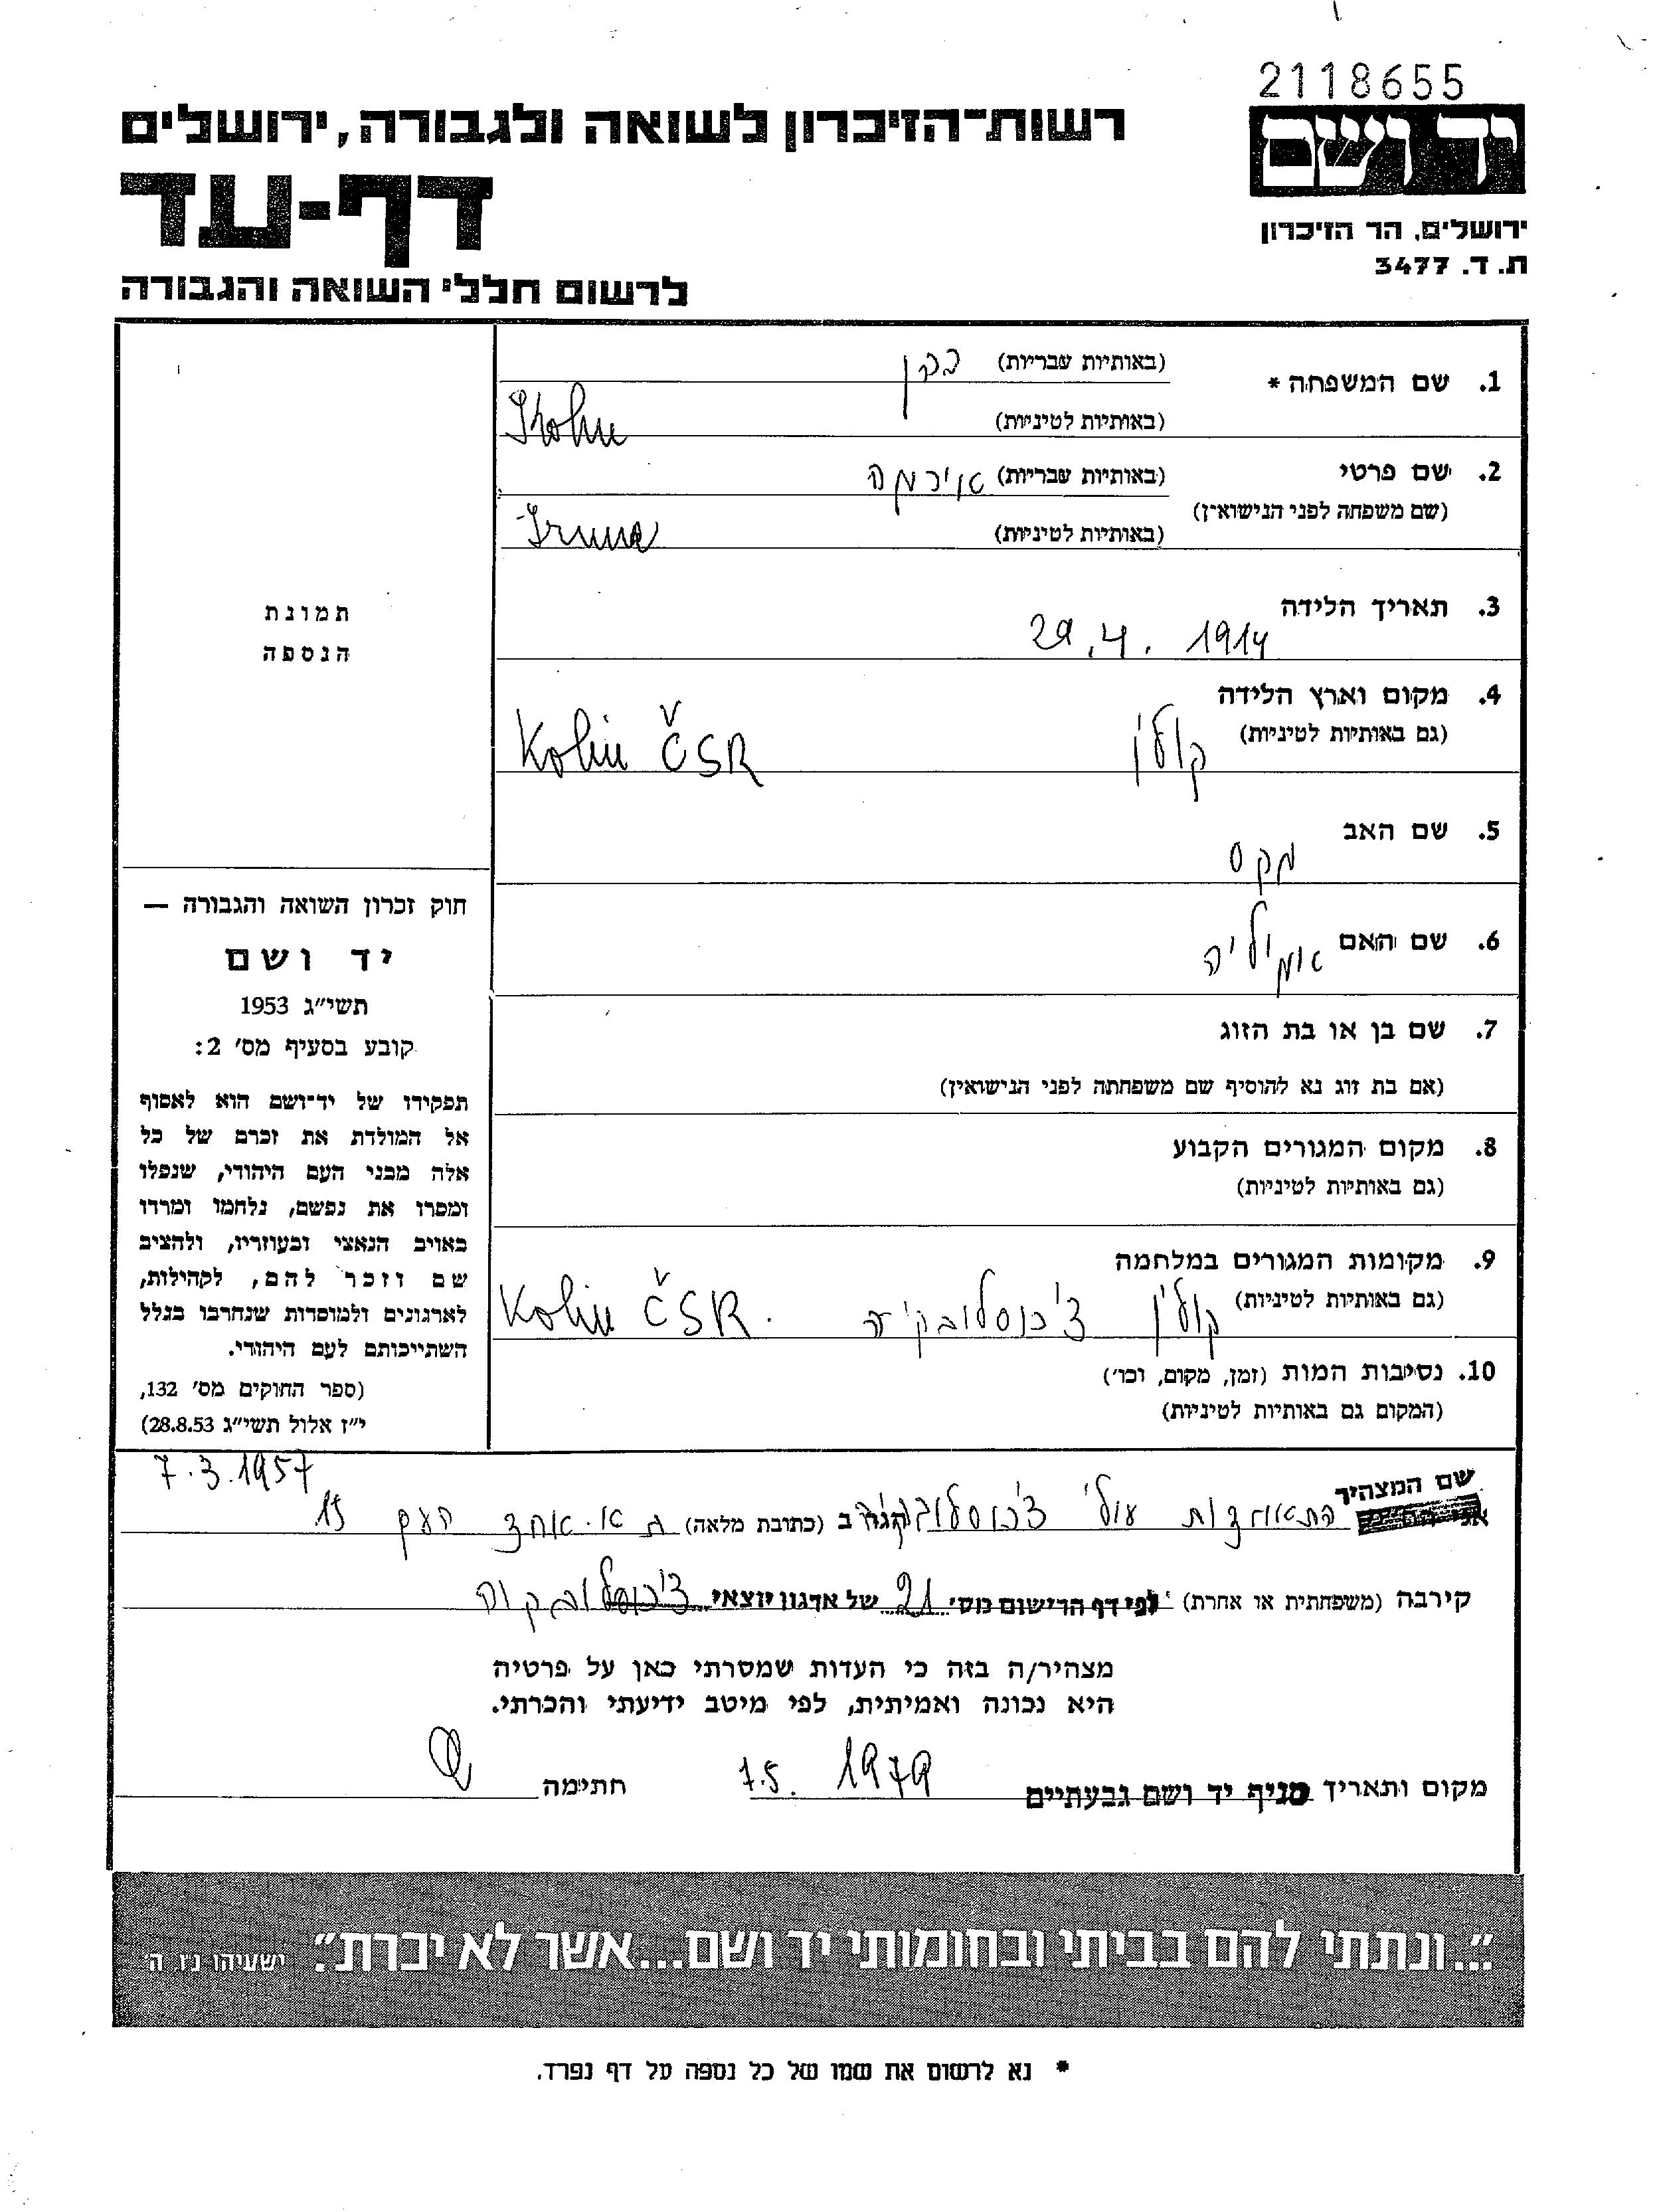 2118655
יד ושם
ירושלים, הר הזיכרון
ת. ד. 3477
רשות-הזיכרון לשואה ולגבורה, ירושלים
דף-עד
לרשום חללי השואה והגבורה
1. שם המשפחה * (באותיות עבריות) כהן
(באותיות לטיניות) Kohn
2. שם פרטי (באותיות עבריות) אירמה
(שם משפחה לפני הנישואין)
(באותיות לטיניות) Irma
3. תאריך הלידה 29.4. 1914
4. מקום וארץ הלידה
(גם באותיות לטיניות) קולין Kolin ČSR
5. שם האב מקס
6. שם האם אמיליה
7. שם בן או בת הזוג
(אם בת זוג נא להוסיף שם משפחתה לפני הנישואין)
8. מקום המגורים הקבוע
(גם באותיות לטיניות)
9. מקומות המגורים במלחמה
(גם באותיות לטיניות) קולין צ'כוסלובקיה Kolin ČSR.
10. נסיבות המות (זמן, מקום, וכו')
(המקום גם באותיות לטיניות)
תמונת
הנספה
חוק זכרון השואה והגבורה —
יד ושם
תשי"ג 1953
קובע בסעיף מס' 2:
תפקידו של יד-ושם הוא לאסוף
אל המולדת את זכרם של כל
אלה מבני העם היהודי, שנפלו
ומסרו את נפשם, נלחמו ומרדו
באויב הנאצי ובעוזריו, ולהציב
שם וזכר להם, לקהילות,
לארגונים ולמוסדות שנחרבו בגלל
השתייכותם לעם היהודי.
(ספר החוקים מס' 132,
י"ז אלול תשי"ג 28.8.53)
7.3.1957
שם המצהיר התאחדות עולי צ'כוסלובקיה הגר ב (כתובת מלאה) ת"א. אחד העם 15
קירבה (משפחתית או אחרת) לפי דף הרישום מס' 21 של ארגון יוצאי צ'כוסלובקיה
מצהיר/ה בזה כי העדות שמסרתי כאן על פרטיה
היא נכונה ואמיתית, לפי מיטב ידיעתי והכרתי.
מקום ותאריך סניף יד ושם גבעתיים 7.5. 1979 חתימה
"...ונתתי להם בביתי ובחומותי יד ושם...אשר לא יכרת". ישעיהו נ"ו ה'
* נא לרשום את שמו של כל נספה על דף נפרד.